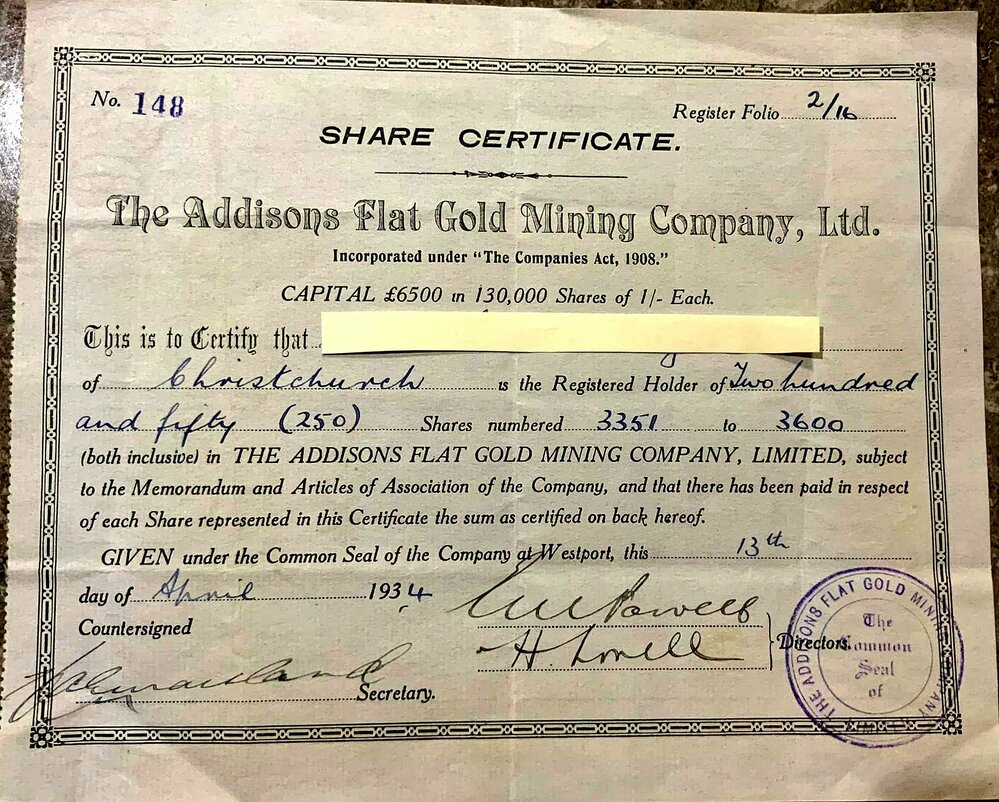 No. 148
Register Folio 2/16
SHARE CERTIFICATE.
The Addisons Flat Gold Mining Company, Ltd.
Incorporated under "The Companies Act, 1908."
CAPITAL £6500 in 130,000 Shares of 1/- Each.
This is to Certify that
of Christchurch is the Registered Holder of Two hundred
and fifty (250) Shares numbered 3351 to 3600
(both inclusive) in THE ADDISONS FLAT GOLD MINING COMPANY, LIMITED, subject
to the Memorandum and Articles of Association of the Company, and that there has been paid in respect
of each Share represented in this Certificate the sum as certified on back hereof.
GIVEN under the Common Seal of the Company at Westport, this 13th
day of April 1934
Powell
H. Lovell
Countersigned
Directors.
Secretary.
THE ADDISONS FLAT GOLD MINING
The
Common
Seal
of